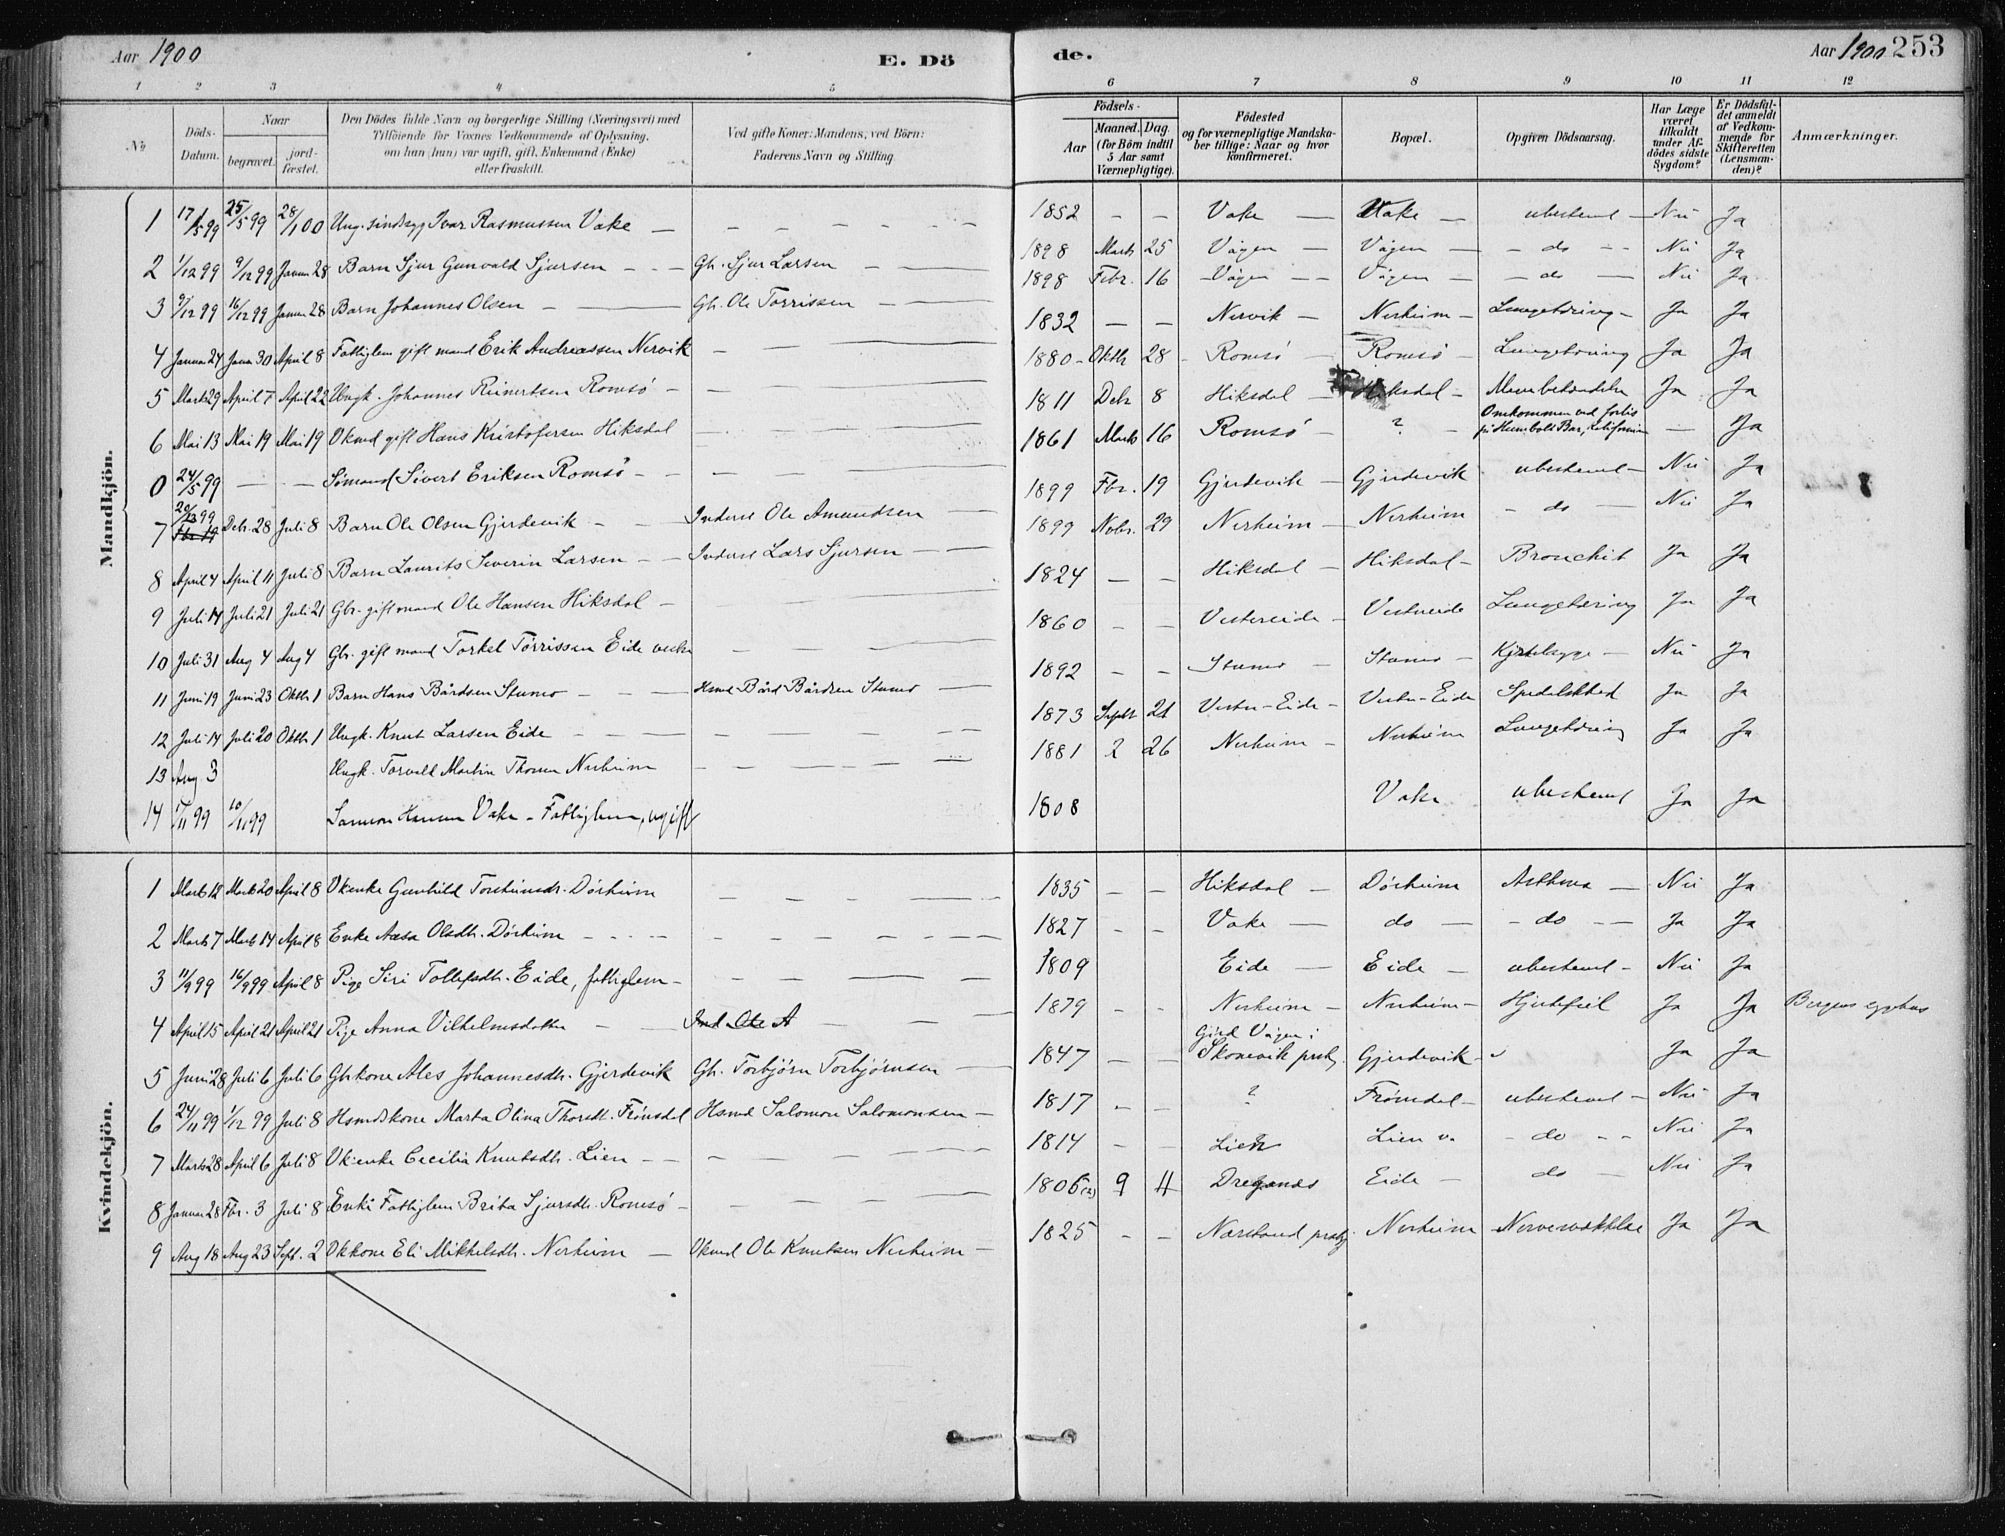 Aar 1900
E. Dö
de.
Aar 1900
253
1 2 3 4 5 6 7 8 9 10 11 12
No
Döds-
Datum.
Naar
begravet.
jord-
fæstet.
Den Dödes fulde Navn og borgerlige Stilling (Næringsvei) med
Tilföiende for Voxnes Vedkommende af Oplysning,
om han (hun) var ugift, gift, Enkemand (Enke)
eller fraskilt.
Ved gifte Koner: Mandens, ved Börn:
Faderens Navn og Stilling.
Födsels-
Aar
Maaned. Dag.
(for Börn indtil
5 Aar samt
Værnepligtige).
Födested
og for værnepligtige Mandska-
ber tillige: Naar og hvor
konfirmeret.
Bopæl.
Opgiven Dödsaarsag.
Har Læge
været
tilkaldt
under Af-
dödes sidste
Sygdom?
Er Dödsfal-
det anmeldt
af Vedkom-
mende for
Skifteretten
(Lensman-
den)?
Anmærkninger.
Mandkjön.
1 17/5 99 25/5 99 28/1 00 Ung. sindsyg Ivar Rasmussen Vake — 1852 — — Vake — Vake — ubestemt — Nei Ja
2 1/12 99 9/12 99 Januar 28 Barn Sjur Gunvald Sjursen — Gb. Sjur Larsen — 1898 Marts 25 Vågen — Vågen — do — Nei Ja
3 9/12 99 16/12 99 Januar 28 Barn Johannes Olsen — Gb. Ole Torrissen — 1898 Febr. 16 Vågen — Vågen — do — Nei Ja
4 Januar 24 Januar 30 April 8 Fattiglem gift mand Erik Andreassen Nervik — 1832 — — Nervik — Nerheim — Lungetæring — Ja Ja
5 Marts 29 April 7 April 22 Ungk. Johannes Reinertsen Romsö — 1880 — Oktb 28 Romsö — Romsö — Lungetæring Ja Ja
6 Mai 13 Mai 19 Mai 19 Vkmd gift Hans Kristofersen Hiksdal — 1811 Deb 8 Hiksdal — Hiksdal — Ja Ja
0 24/5 99 — — Sömand Sivert Eriksen Romsö — 1861 Marts 16 Romsö ? — Omkommen ved forlis på Humbolt Bar, Kalifornien — Ja
7 20/12 99 Debr. 28 Juli 8 Barn Ole Olsen Gjerdevik — Inderst Ole Amundsen — 1899 Fbr. 19 Gjerdevik — Gjerdevik ubestemt — Nei Ja
8 April 4 April 11 Juli 8 Barn Laurits Severin Larsen — Inderst Lars Sjursen — 1899 Nobr. 29 Nerheim — Nerheim — do — Nei Ja
9 Juli 14 Juli 21 Juli 21 Gbr. gift mand Ole Hansen Hiksdal — 1824 — — Hiksdal — Hiksdal — Bronchit Ja Ja
10 Juli 31 Aug 4 Aug 4 Gbr. gift mand Torkel Torrissen Eide vestre 1860 — — Vestereide — Vestreeide Lungetæring Ja Ja
11 Juni 19 Juni 23 Oktb 1 Barn Hans Bårdsen Stumo — Hsmd Bård Bårdsen Stumo 1892 — — Stumo — Stumo — Kjertelsyge — Nei Ja
12 Juli 14 Juli 20 Oktb 1 Ungk. Knut Larsen Eide — 1873 Septb 21 Vestre-Eide — Vestre-Eide Spedalskhed Ja Ja
13 Aug 3 Ungk. Torvald Martin Thorsen Nerheim — 1881 2 26 Nerheim — Nerheim Lungetæring Ja Ja
14 1/11 99 10/11 99 Samson Hansen Vake — Fattiglem, ugift 1808 Vake ubestemt Ja Ja
Kvindekjön.
1 Marts 12 Marts 20 April 8 Vkenke Gunhild Torsteinsdr. Dörheim — 1835 — — Hiksdal — Dörheim Asthma — Nei Ja
2 Marts 7 Marts 14 April 8 Enke Aasa Olsdtr. Dörheim — 1827 — — Vake — do — do — Ja Ja
3 11/9 99 16/9 99 April 8 Pige Siri Tollefsdtr. Eide, fattiglem — 1809 Eide — Eide — ubestemt — Nei Ja
4 April 15 April 21 April 21 Pige Anna Vilhelmsdatter — Ind Ole A — 1879 — — Nerheim — Nerheim — Hjertefeil Ja Ja Bergens sygehus
5 Juni 28 Juli 6 Juli 6 Gbkone Ales Johannesdtr. Gjerdevik Gb. Torbjörn Torbjörnsen — 1847 — — Gård Vågen i Skonevik prstgj. Gjerdevik — Ja Ja
6 24/11 99 1/12 99 Juli 8 Hsmdskone Marta Olina Thorsdtr. Frönsdal Hsmd Salomon Salomonsen — 1817 — — ? Frönsdal — ubestemt — Nei Ja
7 Marts 28 April 6 Juli 8 Vkenke Cecilia Knutsdtr. Lien — 1814 — — Lien Lien v. — do — Nei Ja
8 Januar 28 Fbr. 3 Juli 8 Enke Fattiglem Brita Sjursdtr. Romsö — 1806 9 4 Dreganes Eide — do — Nei Ja
9 Aug 18 Aug 23 Sept. 2 Vkkone Eli Mikkelsdtr. Nerheim — Vkmd Ole Knutsen Nerheim — 1825 — — Nærstand prstgj. Nerheim Nervesvækkelse Ja Ja